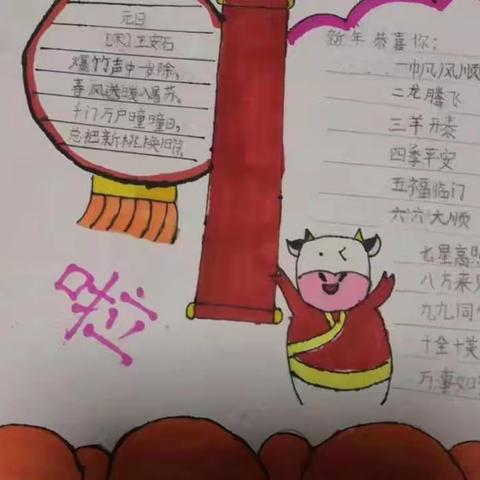 元日
[宋]王安石
爆竹声中一岁除,
春风送暖入屠苏。
千门万户曈曈日,
总把新桃换旧符。
啦
新年恭喜你:
一帆风顺
二龙腾飞
三羊开泰
四季平安
五福临门
六六大顺
七星高照
八方来
九九同
十全十美
万事如